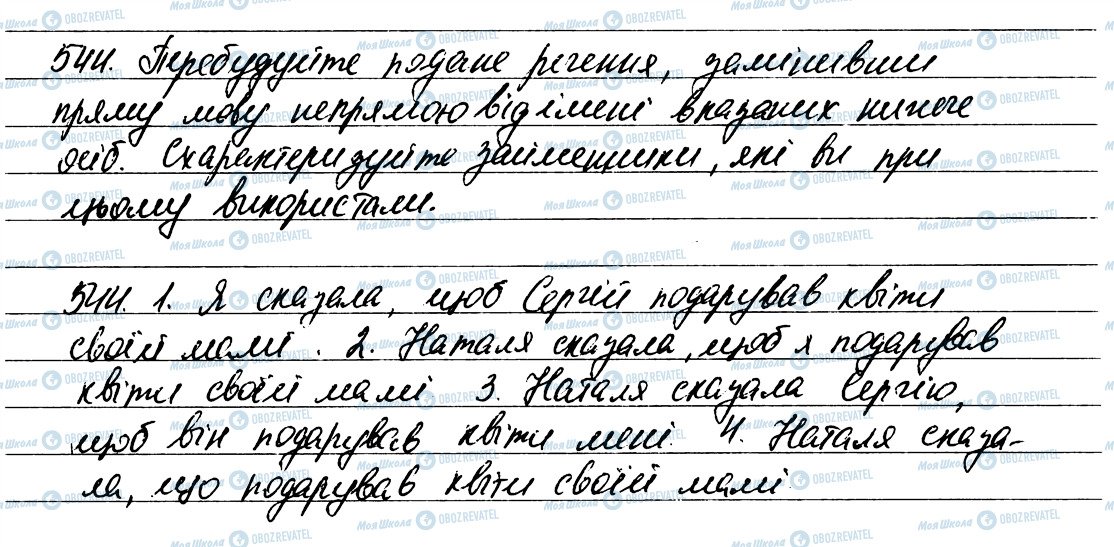 544. Перебудуйте подане речення, замінивши
пряму мову непрямою від імені вказаних нижче
осіб. Схарактеризуйте займенники, які ви при
цьому використали.
544. 1. Я сказала, щоб Сергій подарував квіти
своїй мамі. 2. Наталя сказала, щоб я подарував
квіти своїй мамі 3. Наталя сказала Сергію,
щоб він подарував квіти мені 4. Наталя сказа-
ла, що подарував квіти своїй мамі